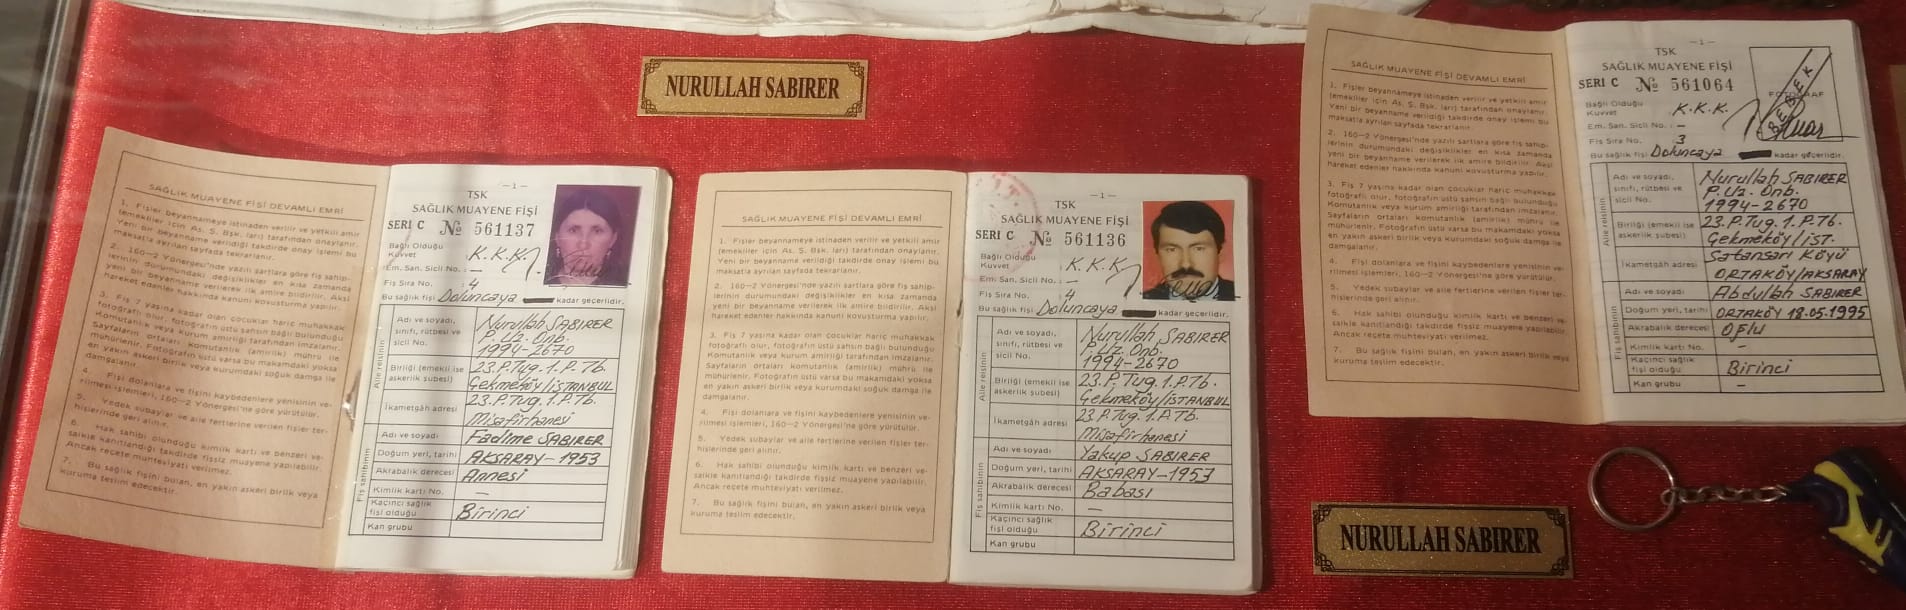 NURULLAH SABIRER
SAĞLIK MUAYENE FİŞİ DEVAMLI EMRİ
1. Fişler beyannameye istinaden verilir ve yetkili amir
(emekliler için As. Ş. Bşk. ları) tarafından onaylanır.
Yeni bir beyanname verildiği takdirde onay işlemi bu
maksatla ayrılan sayfada tekrarlanır.
2. 160—2 Yönergesi'nde yazılı şartlara göre fiş sahip-
lerinin durumundaki değişiklikler en kısa zamanda
yeni bir beyanname verilerek ilk amire bildirilir. Aksi
hareket edenler hakkında kanuni kovuşturma yapılır.
3. Fiş 7 yaşına kadar olan çocuklar hariç muhakkak
fotoğraflı olur, fotoğrafın üstü şahsın bağlı bulunduğu
Komutanlık veya kurum amirliği (amirlik) mührü ile
Sayfaların ortaları
mühürlenir. Fotoğrafın üstü varsa bu makamdaki yoksa
en yakın askeri birlik veya kurumdaki soğuk damga ile
damgalanır.
4. Fişi dolanlara ve fişini kaybedenlere yenisinin ve-
rilmesi işlemleri, 160—2 Yönergesi'ne göre yürütülür.
5. Yedek subaylar ve aile fertlerine verilen fişler ter-
hislerinde geri alınır.
6. Hak sahibi olduğunu kimlik kartı ve benzeri ve-
saikle kanıtlandığı takdirde fişsiz muayene yapılabilir.
Ancak reçete muhteviyatı verilmez.
7. Bu sağlık fişini bulan, en yakın askeri birlik veya
kuruma teslim edecektir.
—1—
TSK
SAĞLIK MUAYENE FİŞİ
SERI C № 561137
Bağlı Olduğu
Kuvvet : K.K.K.
Em. San. Sicil No. : —
Fiş Sıra No. : 4
Bu sağlık fişi Doluncaya kadar geçerlidir.
Aile reisinin
Adı ve soyadı, Nurullah SABIRER
sınıfı, rütbesi ve P. Uz. Onb.
sicil No. 1994-2670
Birliği (emekli ise 23.P.Tug.1.P.Tb.
askerlik şubesi) Çekmeköy/İSTANBUL
İkametgâh adresi 23.P.Tug.1.P.Tb.
Misafirhanesi
Fiş sahibinin
Adı ve soyadı Fadime SABIRER
Doğum yeri, tarihi AKSARAY-1953
Akrabalık derecesi Annesi
Kimlik kartı No. —
Kaçıncı sağlık
fişi olduğu Birinci
Kan grubu
SAĞLIK MUAYENE FİŞİ DEVAMLI EMRİ
1. Fişler beyannameye istinaden verilir ve yetkili amir
(emekliler için As. Ş. Bşk. ları) tarafından onaylanır.
Yeni bir beyanname verildiği takdirde onay işlemi bu
maksatla ayrılan sayfada tekrarlanır.
2. 160—2 Yönergesi'nde yazılı şartlara göre fiş sahip-
lerinin durumundaki değişiklikler en kısa zamanda
yeni bir beyanname verilerek ilk amire bildirilir. Aksi
hareket edenler hakkında kanuni kovuşturma yapılır.
3. Fiş 7 yaşına kadar olan çocuklar hariç muhakkak
fotoğraflı olur, fotoğrafın üstü şahsın bağlı bulunduğu
Komutanlık veya kurum amirliği tarafından imzalanır.
Sayfaların ortaları komutanlık (amirlik) mührü ile
mühürlenir. Fotoğrafın üstü varsa bu makamdaki yoksa
en yakın askeri birlik veya kurumdaki soğuk damga ile
damgalanır.
4. Fişi dolanlara ve fişini kaybedenlere yenisinin ve-
rilmesi işlemleri, 160—2 Yönergesi'ne göre yürütülür.
5. Yedek subaylar ve aile fertlerine verilen fişler ter-
hislerinde geri alınır.
6. Hak sahibi olduğunu kimlik kartı ve benzeri ve-
saikle kanıtlandığı takdirde fişsiz muayene yapılabilir.
Ancak reçete muhteviyatı verilmez.
7. Bu sağlık fişini bulan, en yakın askeri birlik veya
kuruma teslim edecektir.
—1—
TSK
SAĞLIK MUAYENE FİŞİ
SERI C № 561136
Bağlı Olduğu
Kuvvet : K.K.K.
Em. San. Sicil No. : —
Fiş Sıra No. : 4
Bu sağlık fişi Doluncaya kadar geçerlidir.
Aile reisinin
Adı ve soyadı, Nurullah SABIRER
sınıfı, rütbesi ve P. Uz. Onb.
sicil No. 1994-2670
Birliği (emekli ise 23.P.Tug.1.P.Tb.
askerlik şubesi) Çekmeköy/İSTANBUL
İkametgâh adresi 23.P.Tug.1.P.Tb.
Misafirhanesi
Fiş sahibinin
Adı ve soyadı Yakup SABIRER
Doğum yeri, tarihi AKSARAY-1953
Akrabalık derecesi Babası
Kimlik kartı No. —
Kaçıncı sağlık
fişi olduğu Birinci
Kan grubu
SAĞLIK MUAYENE FİŞİ DEVAMLI EMRİ
1. Fişler beyannameye istinaden verilir ve yetkili amir
(emekliler için As. Ş. Bşk. ları) tarafından onaylanır.
Yeni bir beyanname verildiği takdirde onay işlemi bu
maksatla ayrılan sayfada tekrarlanır.
2. 160—2 Yönergesi'nde yazılı şartlara göre fiş sahip-
lerinin durumundaki değişiklikler en kısa zamanda
yeni bir beyanname verilerek ilk amire bildirilir. Aksi
hareket edenler hakkında kovuşturma yapılır.
3. Fiş 7 yaşına kadar olan çocuklar hariç muhakkak
fotoğraflı olur, fotoğrafın üstü şahsın bağlı bulunduğu
Komutanlık veya kurum amirliği tarafından imzalanır.
Sayfaların ortaları komutanlık (amirlik) mührü ile
mühürlenir. Fotoğrafın üstü varsa bu makamdaki yoksa
en yakın askeri birlik veya kurumdaki soğuk damga ile
damgalanır.
4. Fişi dolanlara ve fişini kaybedenlere yenisinin ve-
rilmesi işlemleri, 160—2 Yönergesi'ne göre yürütülür.
5. Yedek subaylar ve aile fertlerine verilen fişler ter-
hislerinde geri alınır.
6. Hak sahibi olduğunu kimlik kartı ve benzeri ve-
saikle kanıtlandığı takdirde fişsiz muayene yapılabilir.
Ancak reçete muhteviyatı verilmez.
7. Bu sağlık fişini bulan, en yakın askeri birlik veya
kuruma teslim edecektir.
—1—
TSK
SAĞLIK MUAYENE FİŞİ
SERI C № 561064
FOTOĞRAF
BEBEK
Bağlı Olduğu
Kuvvet : K.K.K.
Em. San. Sicil No. : —
Fiş Sıra No. : 3
Bu sağlık fişi Doluncaya kadar geçerlidir.
Aile reisinin
Adı ve soyadı, Nurullah SABIRER
sınıfı, rütbesi ve P. Uz. Onb.
sicil No. 1994-2670
Birliği (emekli ise 23.P.Tug.1.P.Tb.
askerlik şubesi) Çekmeköy/İST.
İkametgâh adresi Satansarı Köyü
ORTAKÖY/AKSARAY
Fiş sahibinin
Adı ve soyadı Abdullah SABIRER
Doğum yeri, tarihi ORTAKÖY 18.05.1995
Akrabalık derecesi Oğlu
Kimlik kartı No. —
Kaçıncı sağlık
fişi olduğu Birinci
Kan grubu —
NURULLAH SABIRER